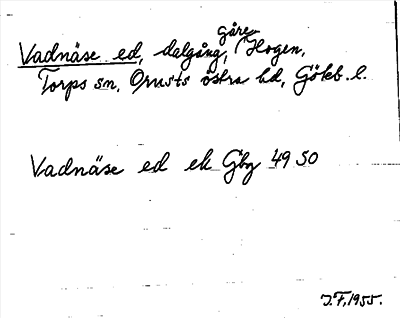 Vadnäse ed, dalgång, Gåre, Hogen,
Torps sn, Orusts östra hd, Göteb. l.
Vadnäse ed ek Gbg 49 50
J.F. 1955.